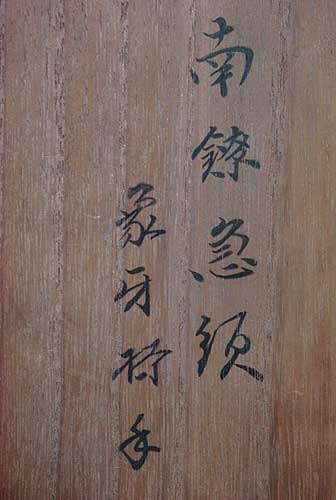 南鐐急須
象牙持手